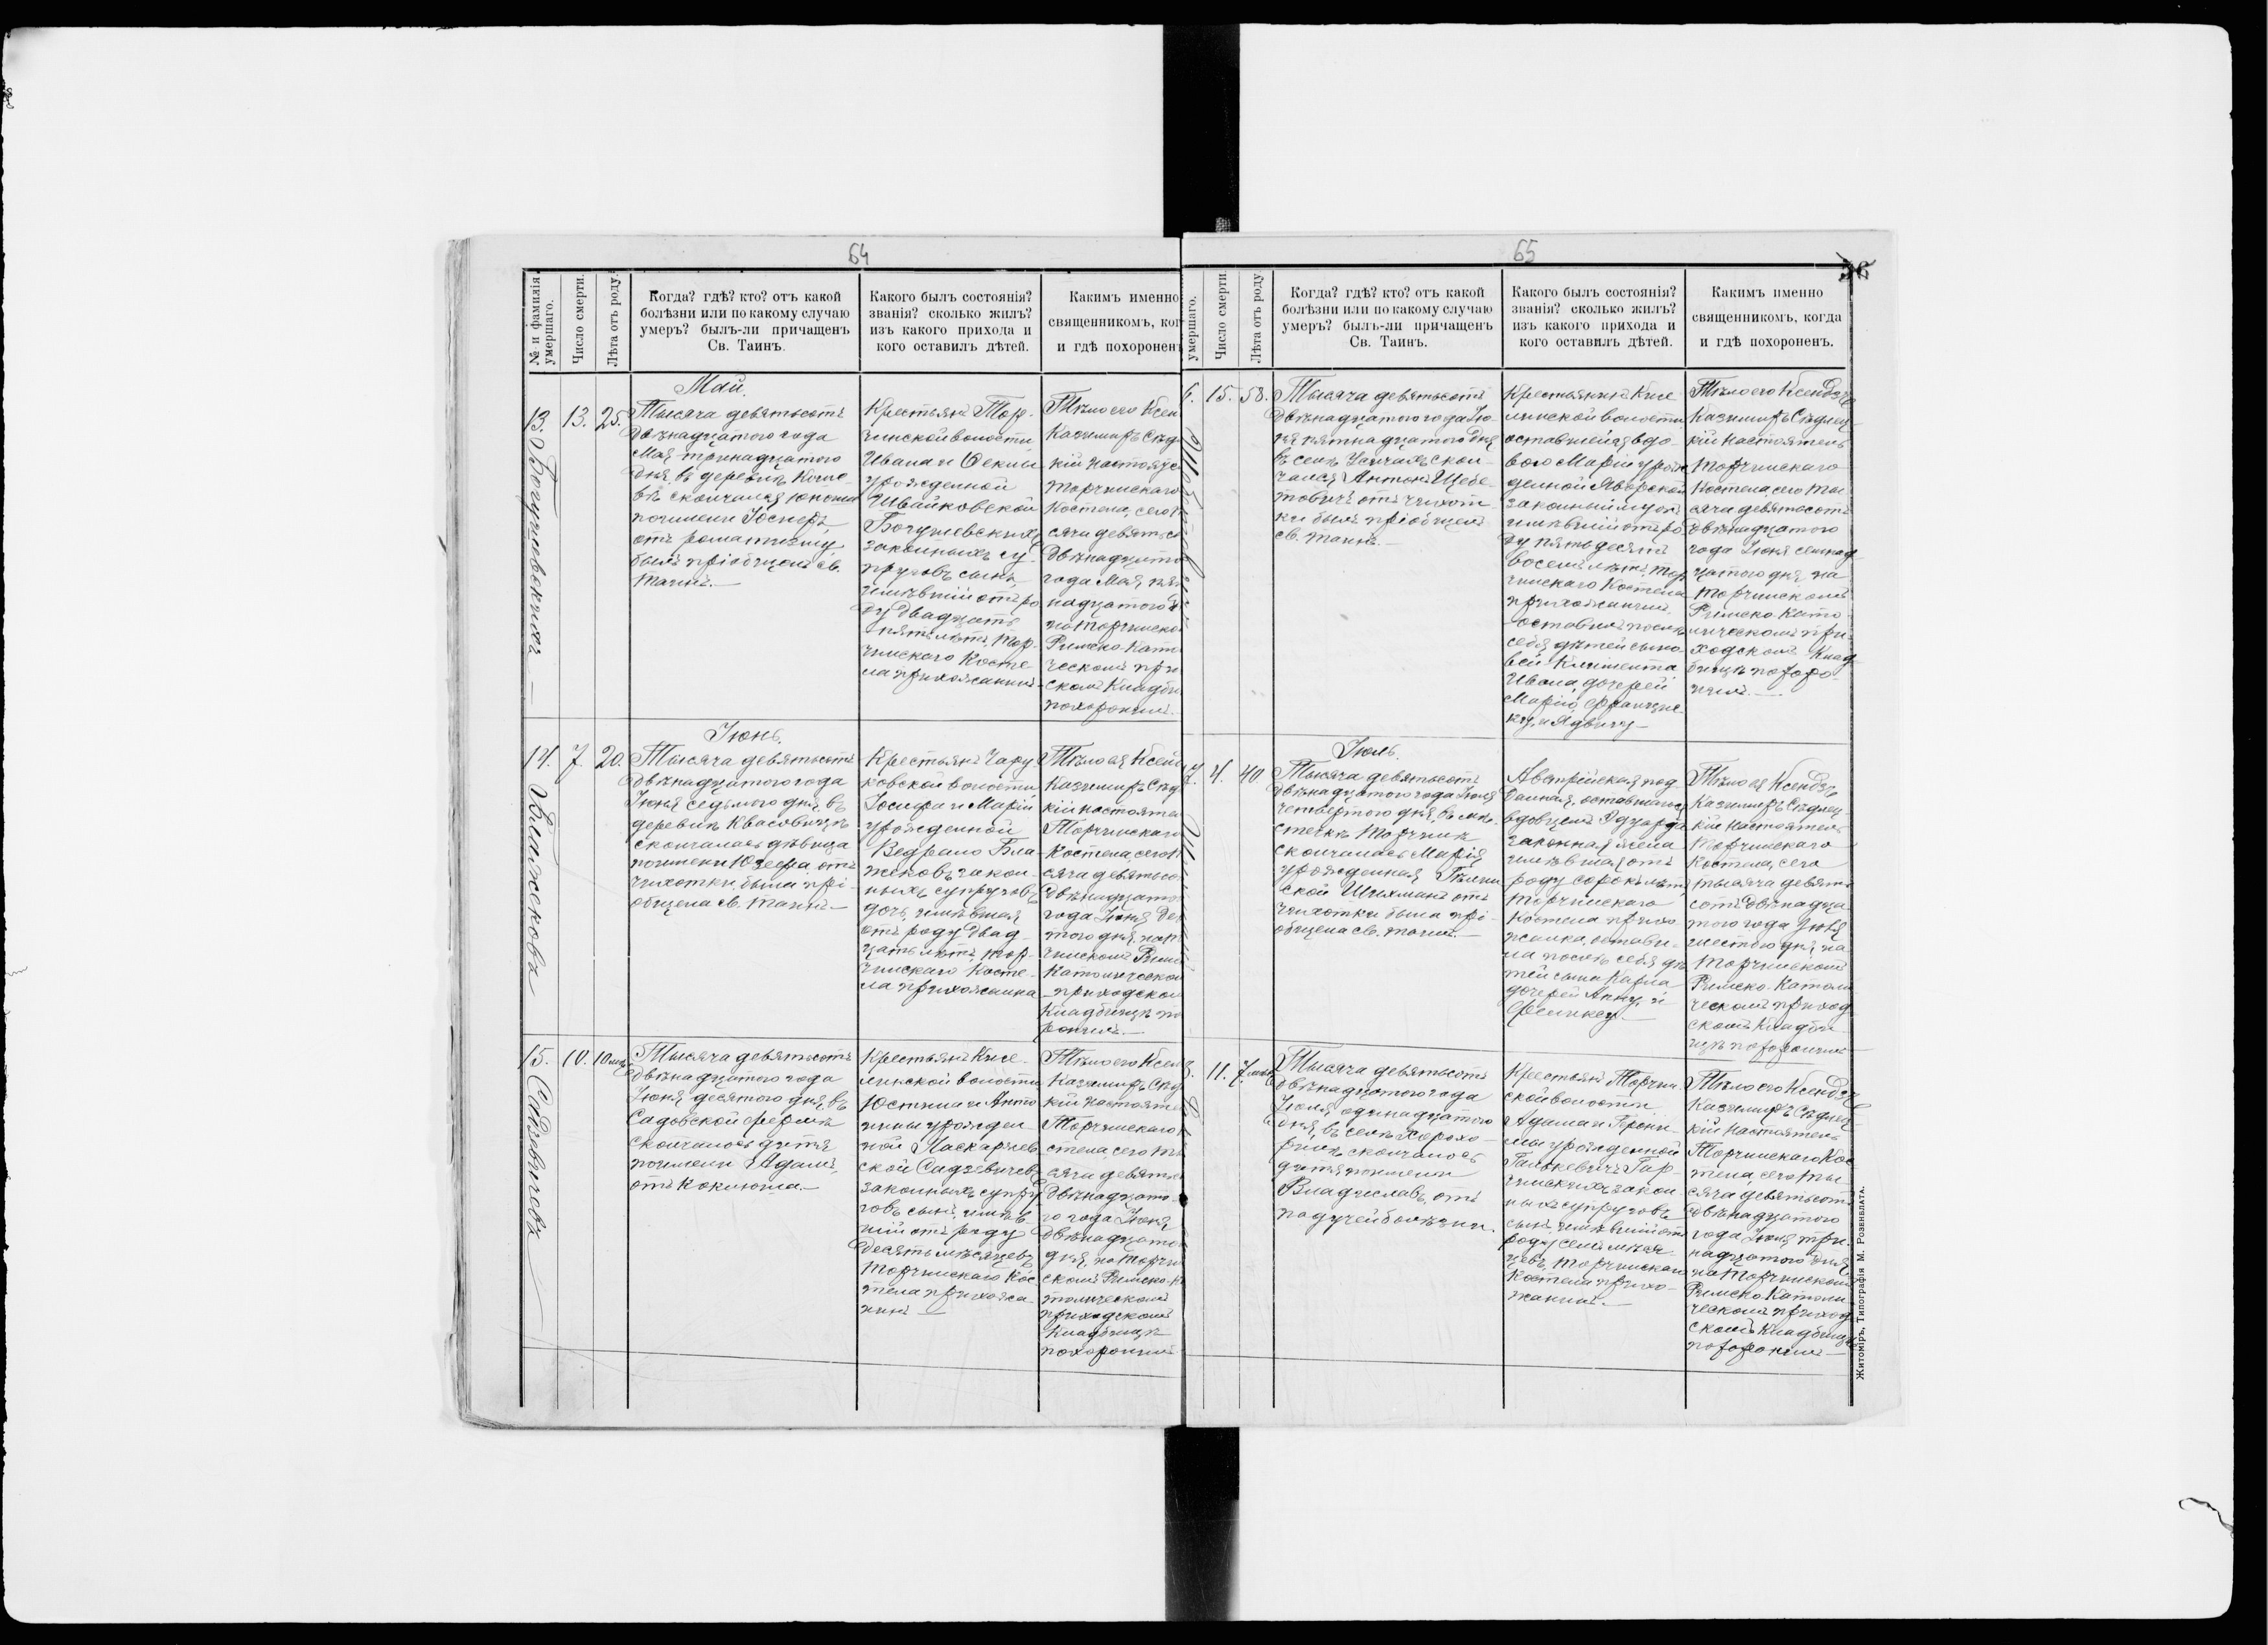 64
№ и фамилія умершаго.
Число смерти.
Лѣта отъ роду.
Когда? гдѣ? кто? отъ какой
болѣзни или по какому случаю
умеръ? былъ-ли причащенъ
Св. Таинъ.
Какого былъ состоянія?
званія? сколько жилъ?
изъ какого прихода и
кого оставилъ дѣтей.
Какимъ именно
священникомъ, ког
и гдѣ похороненъ
13.
13.
25.
Май.
Тысяча девятьсотъ
двѣнадцатого года
Мая тринадцатого
дня, въ деревнѣ
скончался юноша
по имени
отъ ромматизму
былъ пріобщенъ св.
таинъ.—
Крестьянъ Тор-
чинской волости
Ивана и Феклы
урожденной
Ивайковской
Богушевскихъ
законныхъ су-
пруговъ сынъ,
имѣвшій отъ ро
ду двадцать
пять лѣтъ, Тор-
чинскаго Косте-
ла прихожанинъ
Тѣло его Ксен
Казимиръ Сѣд
кій настояте
Торчинскаго
Костела, сего т
сяча девятьсо
двѣнадцато
года Мая пят
надцатого д
на Торчинско
Римско-Като
ческомъ при
скомъ Кладби
похоронилъ.
14.
7.
20.
Блажекова
Іюнь.
Тысяча девятьсотъ
двѣнадцатого года
Іюня седьмого дня, въ
деревнѣ Квасовицѣ
скончалась дѣвица
по имени Юзефа, отъ
чихотки, была прі-
общена св. таинъ—
Крестьянъ Чару-
ковской волости
Іосифа и Маріи
урожденной
Ведрано Бла-
жековъ закон-
ныхъ супруговъ
дочь, имѣвшая
отъ роду двад-
цать лѣтъ, Тор-
чинскаго Косте-
ла прихожанка
Тѣло ея Ксен
Казимиръ Сѣд
кій настояте
Торчинскаго
Костела, сего т
сяча девятьсо
двѣнадцато
года Іюня де
того дня, на Т
чинскомъ Рим
Католическом
приходском
Кладбищѣ по
ронилъ.—
15.
10.
10 мѣс.
Тысяча девятьсотъ
двѣнадцатого года
Іюня десятого дня, въ
Садовской фермѣ
скончалось дитя
по имени Адамъ,
отъ коклюша.—
Крестьянъ Кисе-
линской волости
Юстина и Анто
нины урожден-
ной Пискаржев-
ской Садзевичевъ
законныхъ супру
говъ сынъ, имѣв-
шій отъ роду
десять мѣсяцевъ
Торчинскаго Кос-
тела прихожа-
нинъ—
Тѣло его Ксен
Казимиръ Сѣд
кій настояте
Торчинскаго
стела, сего ты
сяча девятьс
двѣнадцато-
го года Іюня
двѣнадцато
дня, на Торчи
скомъ Римско-К
толическомъ
приходскомъ
Кладбищѣ
похоронилъ
65
36
умершаго.
Число смерти.
Лѣта отъ роду.
Когда? гдѣ? кто? отъ какой
болѣзни или по какому случаю
умеръ? былъ-ли причащенъ
Св. Таинъ.
Какого былъ состоянія?
званія? сколько жилъ?
изъ какого прихода и
кого оставилъ дѣтей.
Какимъ именно
священникомъ, когда
и гдѣ похороненъ.
6.
15.
58.
Тысяча девятьсотъ
двѣнадцатого года Ію
ня пятнадцатого дня
въ селѣ Усичахъ скон-
чался Антонъ Щебе-
товичъ отъ чихот-
ки былъ пріобщенъ
св. таинъ.—
Крестьянинъ Кисе
линской волости
оставшейся вдо-
вою Маріи урож
денной Яворской
законный мужъ
имѣвшій отъ ро-
ду пятьдесятъ
восемь лѣтъ, Тор
чинскаго Костела
прихожанинъ,
оставилъ послѣ
себя дѣтей сыно-
вей Климента
Ивана, дочерей
Марію, Францис-
ку, и Ядвигу—
Тѣло его Ксендзъ
Казимиръ Сѣдлец
кій настоятель
Торчинскаго
Костела сего ты-
сяча девятьсотъ
двѣнадцатого
года Іюня семнад
цатого дня, на
Торчинскомъ
Римско-Като
лическомъ при-
ходскомъ Клад
бищѣ похоро-
нилъ.—
7.
4.
40
Іюль.
Тысяча девятьсотъ
двѣнадцатого года Іюля
четвертого дня, въ мѣ-
стечкѣ Торчинѣ
скончалась Марія
урожденная
Шихманъ отъ
чихотки была прі-
общена св. таинъ.—
Австрійская под-
данная, оставшагося
вдовцемъ Эдуарда
законная жена
имѣвшая отъ
роду сорокъ лѣтъ,
Торчинскаго
Костела прихо
жанка, остави-
ла послѣ себя дѣ
тей сына Карла
дочерей Анну, и
Фелицу.—
Тѣло ея Ксендзъ
Казимиръ Сѣдлец-
кій настоятель
Торчинскаго
Костела, сего
тысяча девять
сотъ двѣнадца
того года Іюля
шестого дня, на
Торчинскомъ
Римско-Католи
ческомъ приход
скомъ Кладби-
щѣ похоронилъ
8.
11.
7. мѣс.
Тысяча девятьсотъ
двѣнадцатого года
Іюля одинадцатого
дня, въ селѣ Хорохо-
ринѣ скончалось
дитя по имени
Владиславъ, отъ
падучей болѣзни.
Крестьянъ Торчин-
ской волости
Адама и Брони-
славы урожденной
законныхъ супруговъ
сынъ, имѣвшій отъ
роду семь мѣся-
цевъ, Торчинскаго
Костела прихо-
жанинъ.—
Тѣло его Ксендзъ
Казимиръ Сѣдлец-
кій настоятель
Торчинскаго Кос
тела, сего ты-
сяча девятьсотъ
двѣнадцатого
года Іюля три-
надцатого дня,
на Торчинскомъ
Римско-Католи
ческомъ приход
скомъ Кладбищѣ
похоронилъ—
Житоміръ, Типографія М. Розенблата.